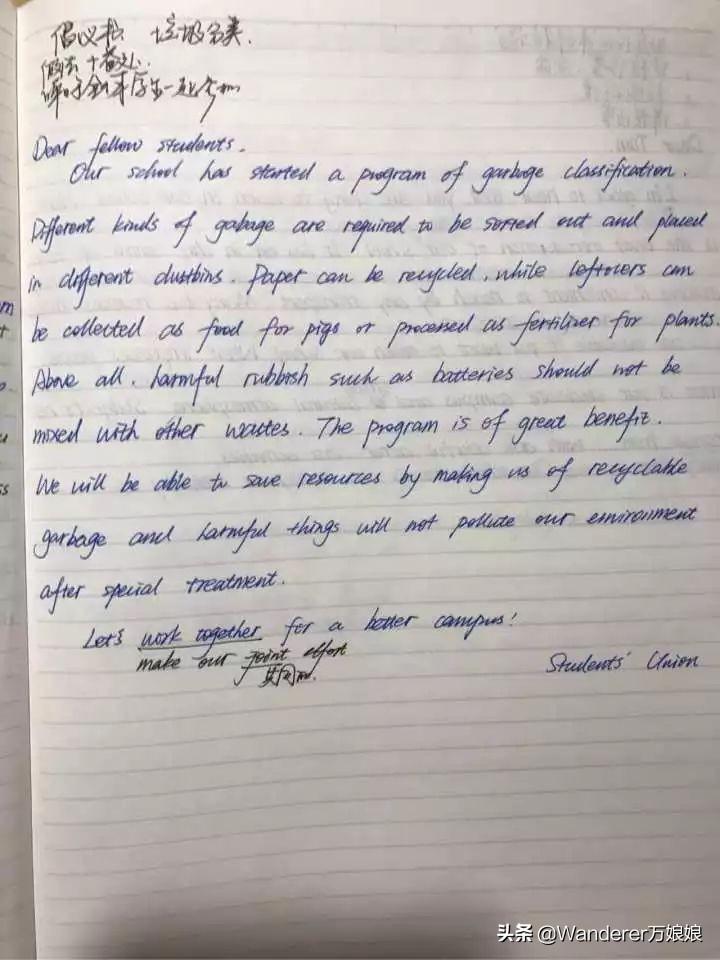 倡议书 垃圾分类.
做法 + 益处.
呼吁全体学生一起参加
Dear fellow students.
Our school has started a program of garbage classification.
Different kinds of garbage are required to be sorted out and placed
in different dustbins. Paper can be recycled, while leftovers can
be collected as food for pigs or processed as fertilizer for plants.
Above all, harmful rubbish such as batteries should not be
mixed with other wastes. The program is of great benefit.
We will be able to save resources by making us of recyclable
garbage and harmful things will not pollute our environment
after special treatment.
Let's work together for a better campus!
make our joint effort
共同的.
Students' Union
头条 @Wanderer万娘娘